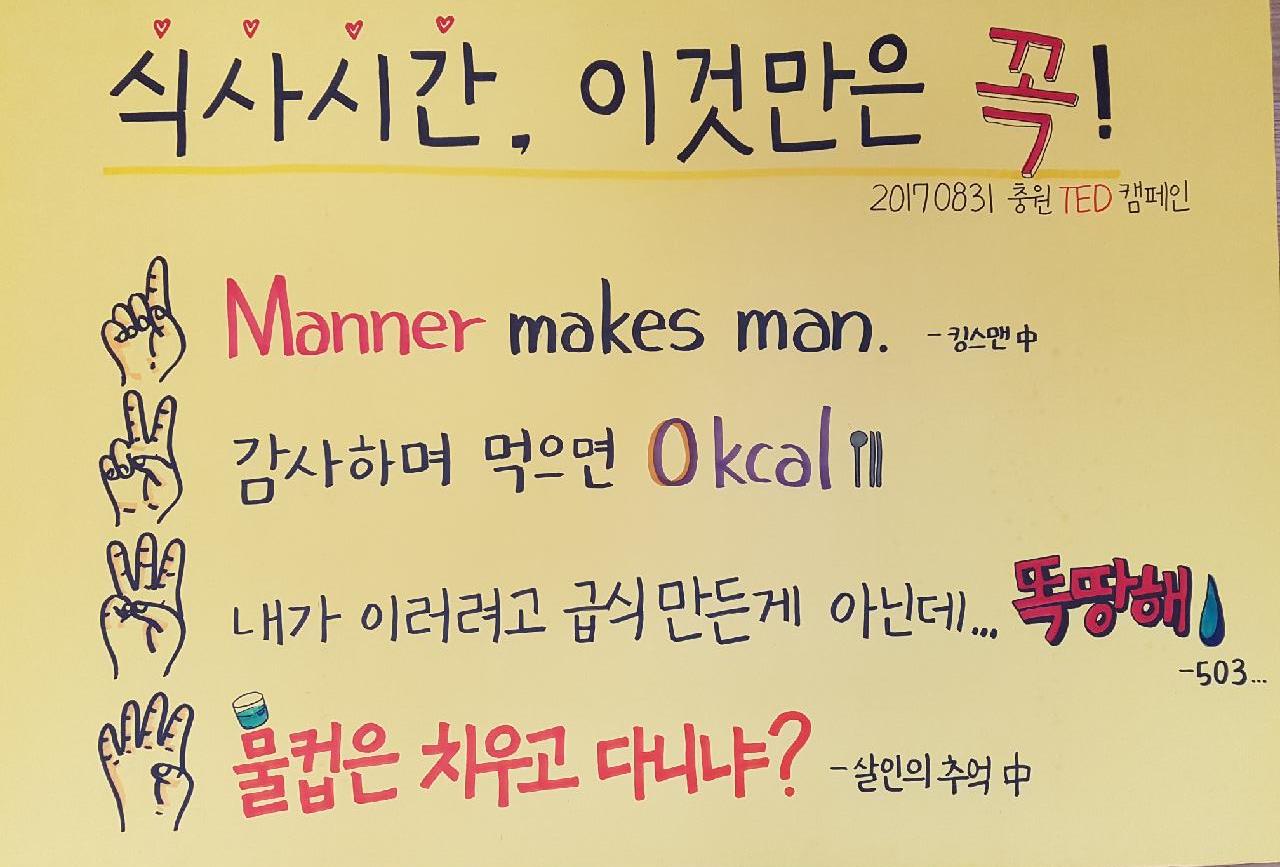 식사시간, 이것만은 꼭!
20170831 충원 TED 캠페인
Manner makes man. -킹스맨 中
감사하며 먹으면 0kcal
내가 이러려고 급식 만든게 아닌데... 똑땅해
-503...
물컵은 치우고 다니냐? -살인의 추억 中